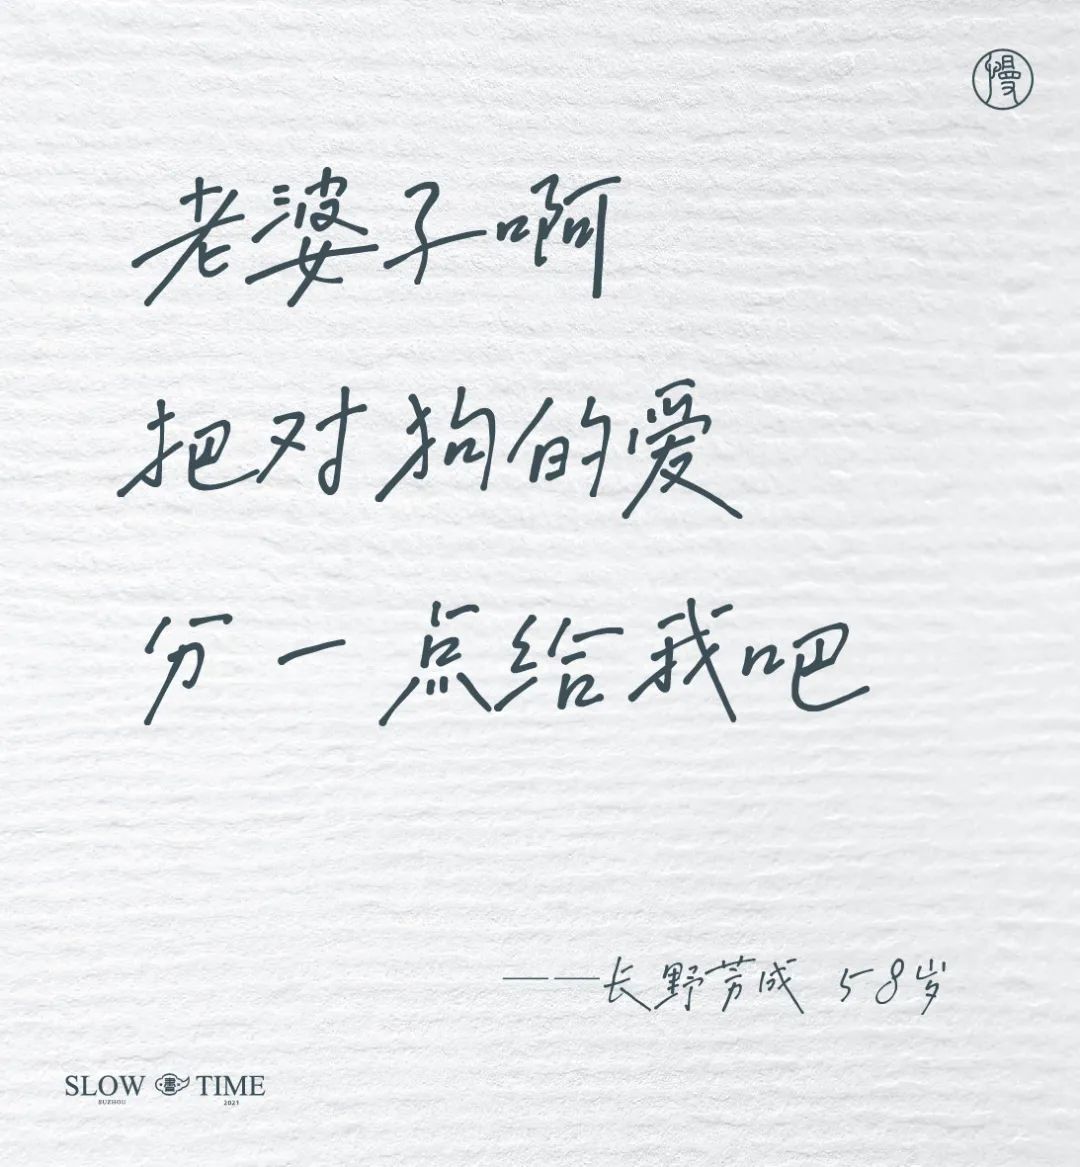 慢
老婆子啊
把对狗的爱
分一点给我吧
——长野芳成 58岁
SLOW 書 TIME
SUZHOU 2021